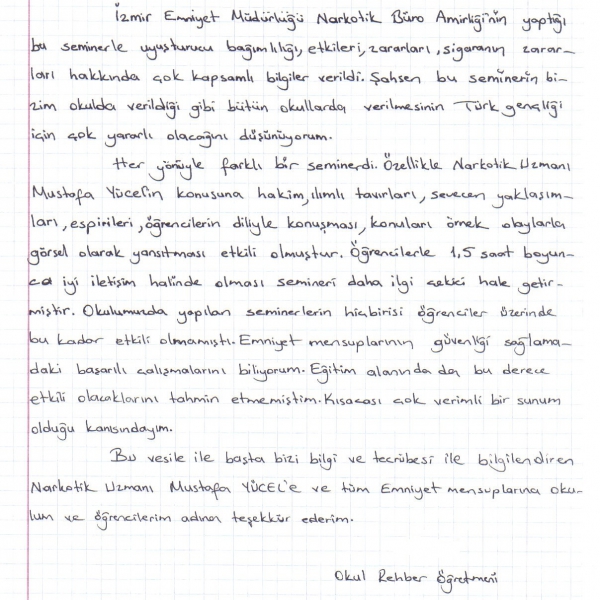 İzmir Emniyet Müdürlüğü Narkotik Büro Amirliği'nin yaptığı
bu seminerle uyuşturucu bağımlılığı, etkileri, zararları, sigaranın zarar-
ları hakkında çok kapsamlı bilgiler verildi. Şahsen bu seminerin bi-
zim okulda verildiği gibi bütün okullarda verilmesinin Türk gençliği
için çok yararlı olacağını düşünüyorum.
Her yönüyle farklı bir seminerdi. Özellikle Narkotik Uzmanı
Mustafa Yücel'in konusuna hakim, ılımlı tavırları, sevecen yaklaşım-
ları, espirileri, öğrencilerin diliyle konuşması, konuları örnek olaylarla
görsel olarak yansıtması etkili olmuştur. Öğrencilerle 1,5 saat boyun-
ca iyi iletişim halinde olması semineri daha ilgi çekici hale getir-
miştir. Okulumuzda yapılan seminerlerin hiçbirisi öğrenciler üzerinde
bu kadar etkili olmamıştı. Emniyet mensuplarının güvenliği sağlama-
daki başarılı çalışmalarını biliyorum. Eğitim alanında da bu derece
etkili olacaklarını tahmin etmemiştim. Kısacası çok verimli bir sunum
olduğu kanısındayım.
Bu vesile ile başta bizi bilgi ve tecrübesi ile bilgilendiren
Narkotik Uzmanı Mustafa YÜCEL'e ve tüm Emniyet mensuplarına oku-
lum ve öğrencilerim adına teşekkür ederim.
Okul Rehber Öğretmeni